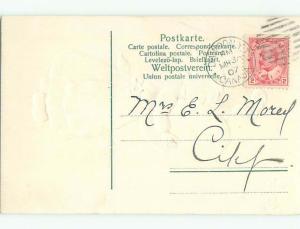 Postkarte.
Carte postale. Correspondenzkarte.
Cartolina postale. Postcard.
Levelező-lap. Briefkaart.
Weltpostverein.
Union postale universelle.
Mrs E. L.
City